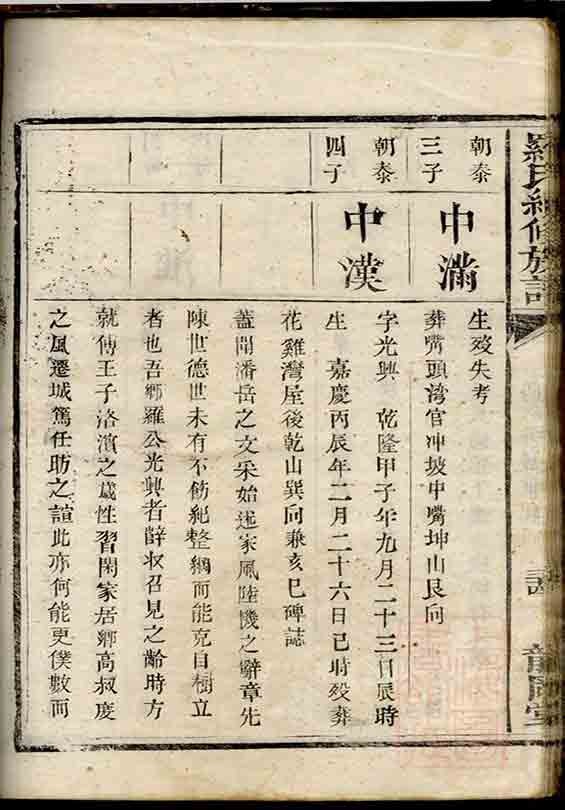 羅氏續修族譜
朝泰
三子
中滿
生歿失考
葬嘴頭湾官冲坡中嘴坤山艮向
朝泰
四子
中漢
字光興 乾隆甲子年九月二十三日辰時
生 嘉慶丙辰年二月二十六日巳時歿葬
花雞灣屋後乾山巽向兼亥巳碑誌
蓋聞潘岳之文采始述家風陸機之辭章先
陳世德世未有不飭紀整綱而能克自樹立
者也吾鄉羅公光興者辭収召見之齡時方
就傅王子洛濱之歲性習閑家居鄉高叔度
之風遷城篤任昉之誼此亦何能更僕數而